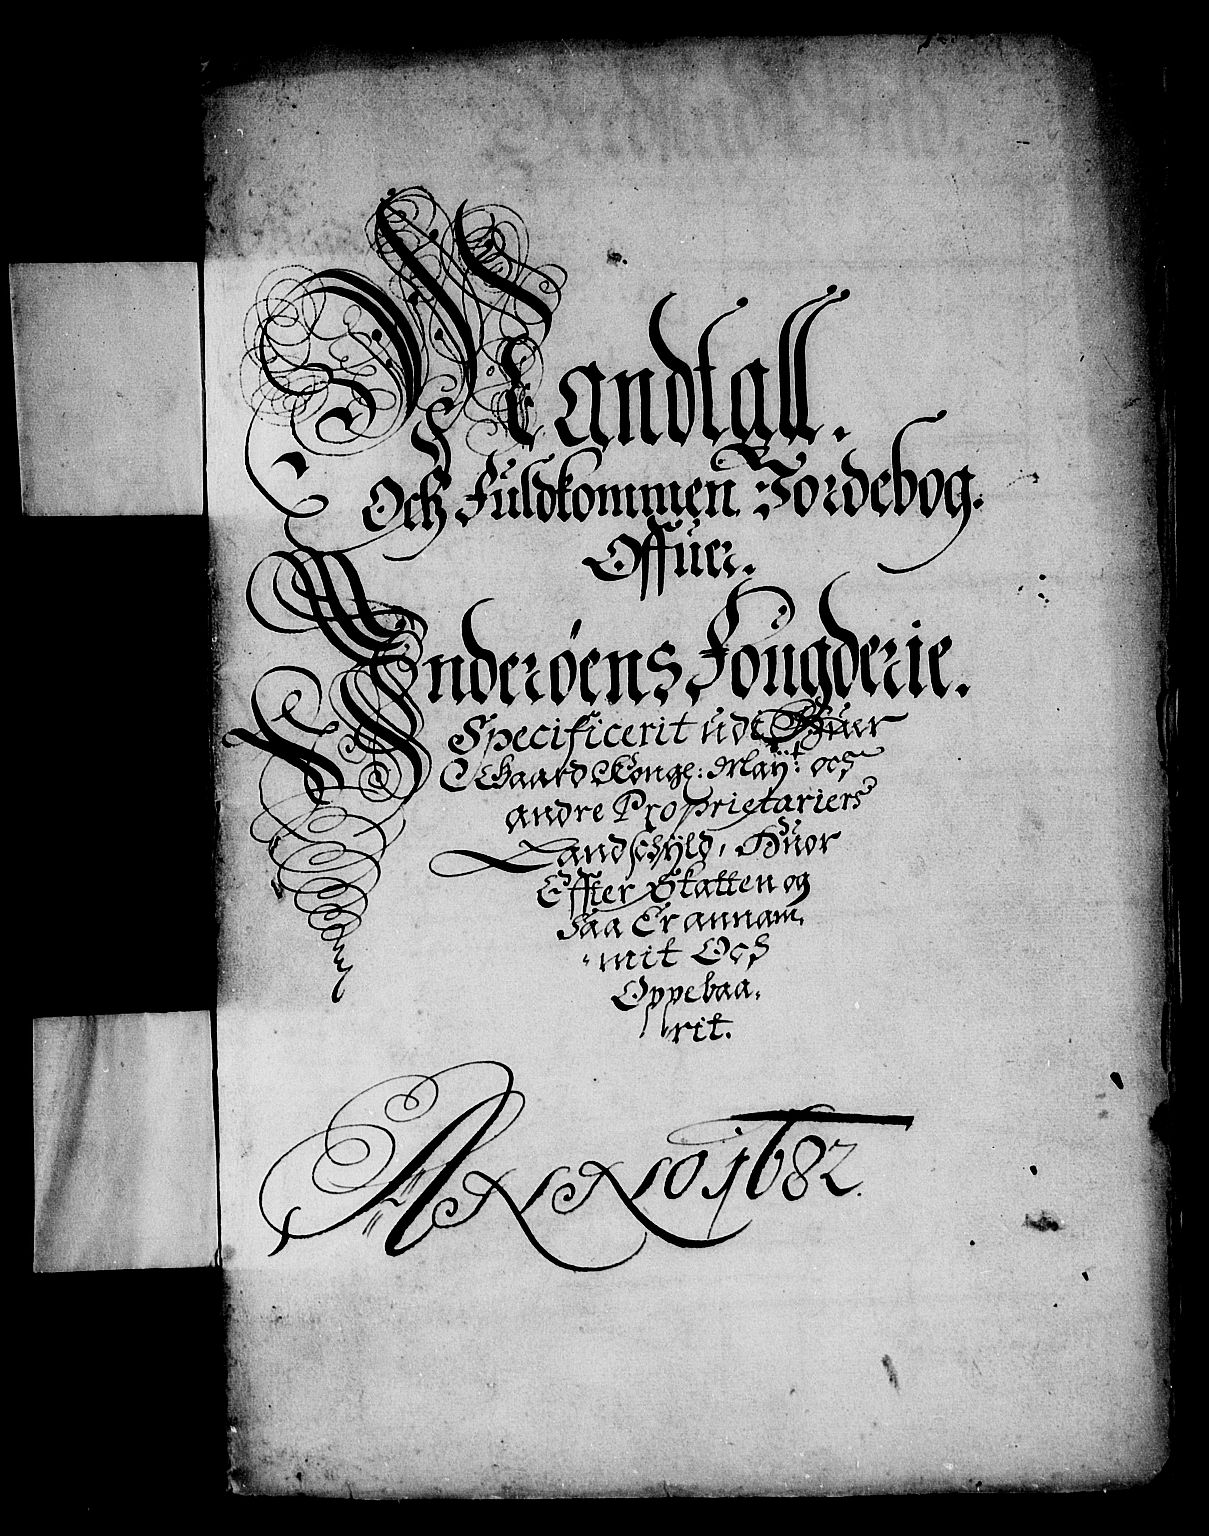 Mandtall.
Och Fuldkommen Jordebog.
Offuer.
Inderöens Fougderie.
Specificerit udi Huer
Gaard Konge: Maÿt: och
andre Proprietariers
Landschÿld, Huor
Effter Skatten og
saa Er annam,
mit Och
Oppebaa,
rit.
ANNO 1682.